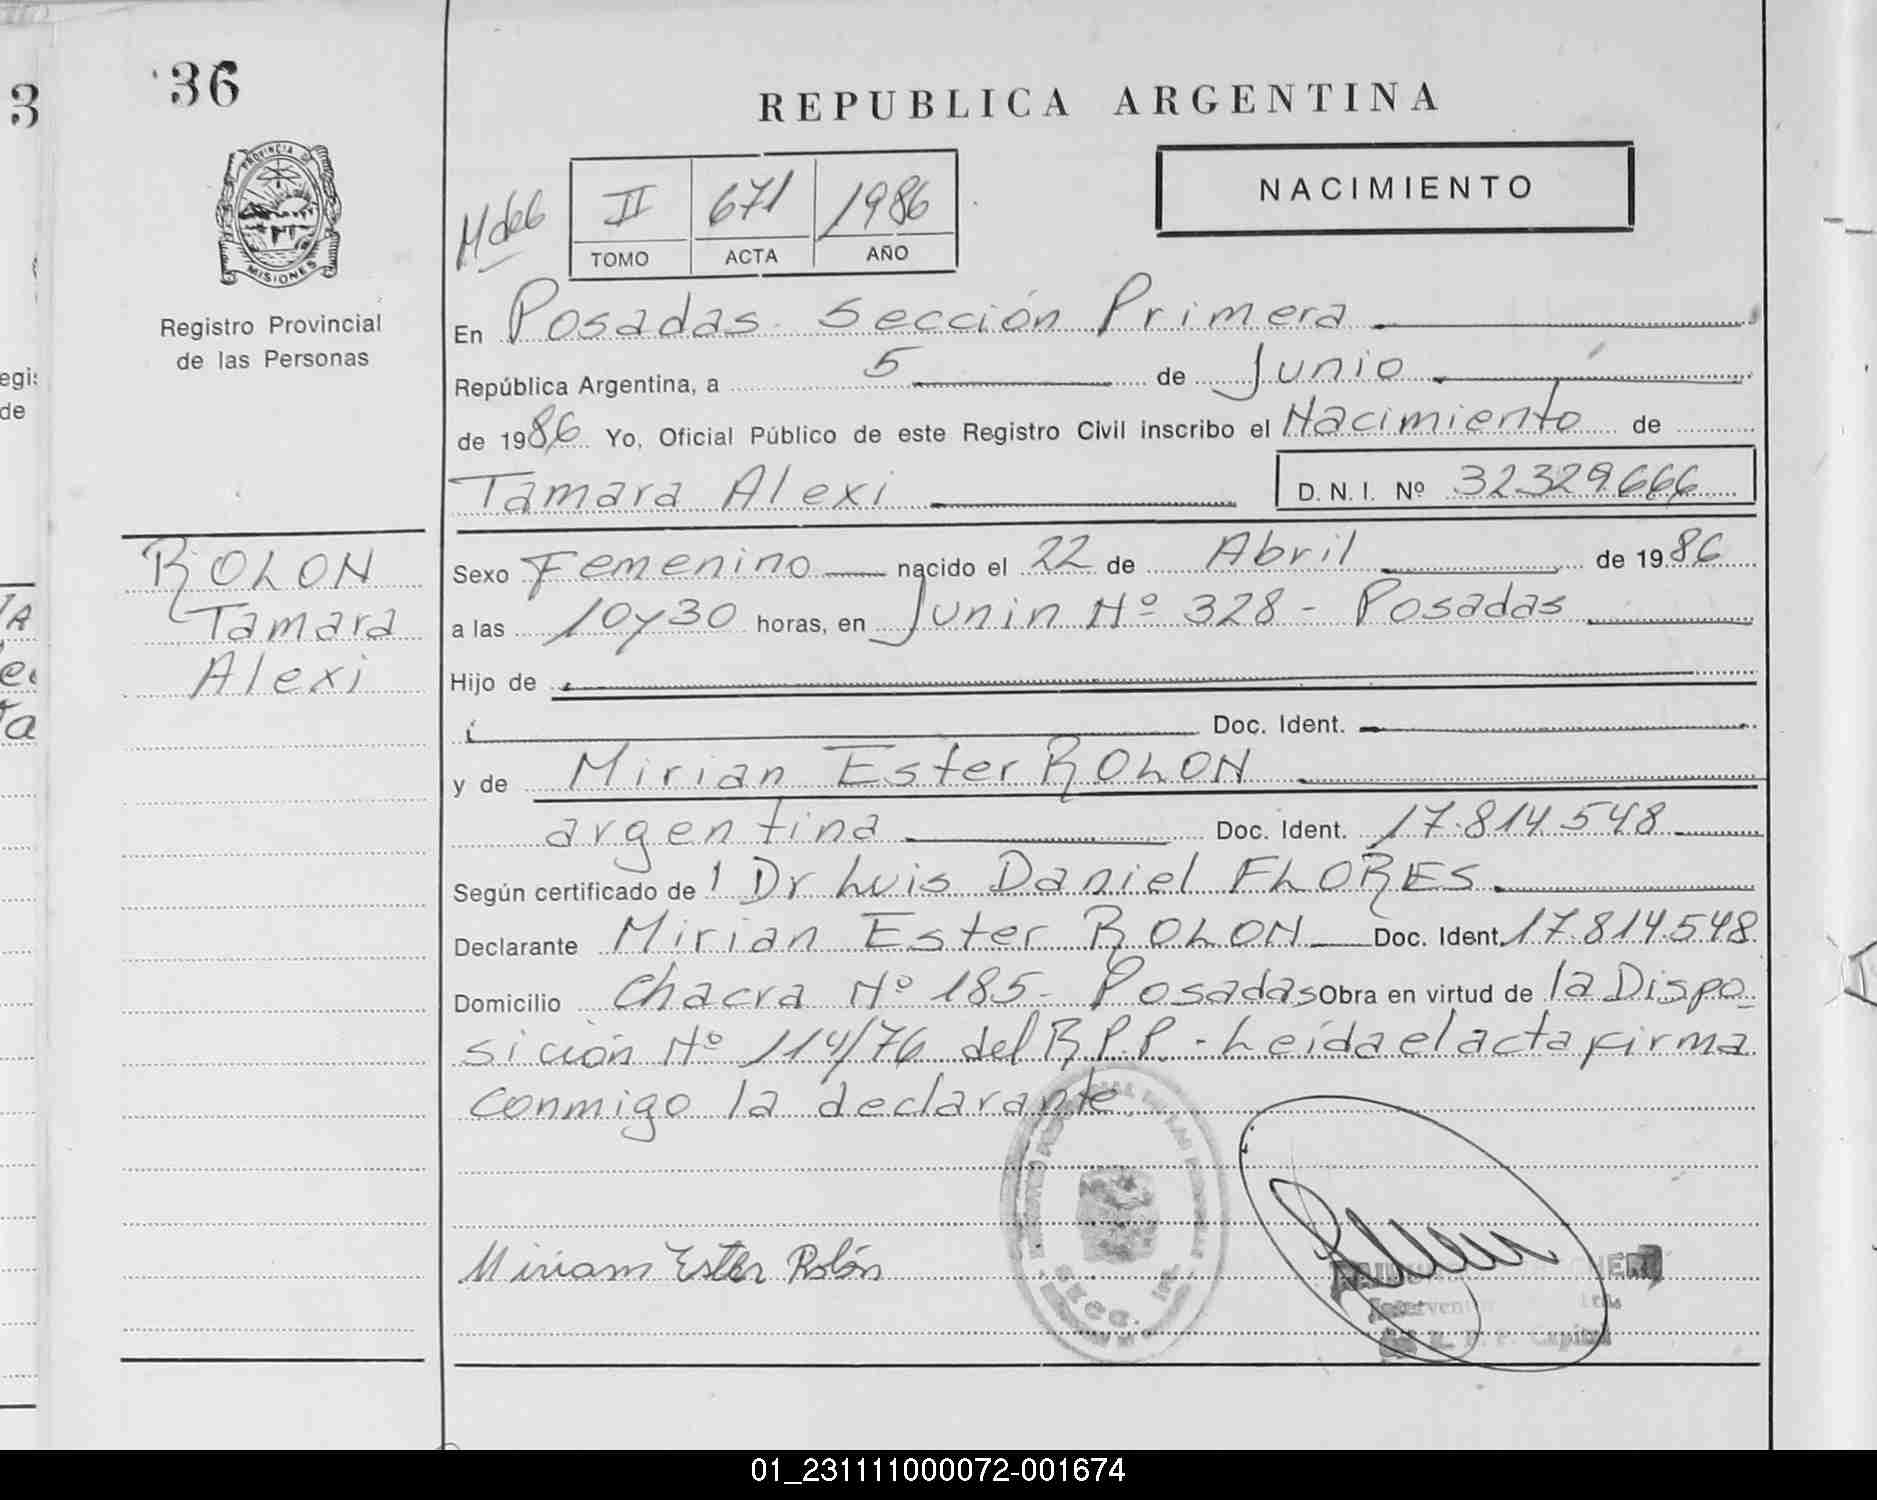 36
3
REPUBLICA ARGENTINA
PROVINCIA DE
MISIONES
Registro Provincial
de las Personas
NACIMIENTO
II 671 1986
TOMO ACTA AÑO
En Posadas Sección Primera
República Argentina, a 5 de Junio
de 1986 Yo, Oficial Público de este Registro Civil inscribo el Nacimiento de
Tamara Alexi D.N.I. Nº 32329.666
ROLON
Tamara
Alexi
Sexo Femenino nacido el 22 de Abril de 1986
a las 10y30 horas, en Junin Nº 328 - Posadas
Hijo de
Doc. Ident.
y de Mirian Ester ROLON
argentina Doc. Ident. 17.814.548
Según certificado del Dr Luis Daniel FLORES
Declarante Mirian Ester ROLON Doc. Ident. 17.814.548
Domicilio Chacra Nº 185 - Posadas Obra en virtud de la Dispo-
sición Nº 114/76 del R.P.P. - Leída el acta firma
conmigo la declarante.
Miriam Ester Rolón
R. P. P. Capital
01_231111000072-001674